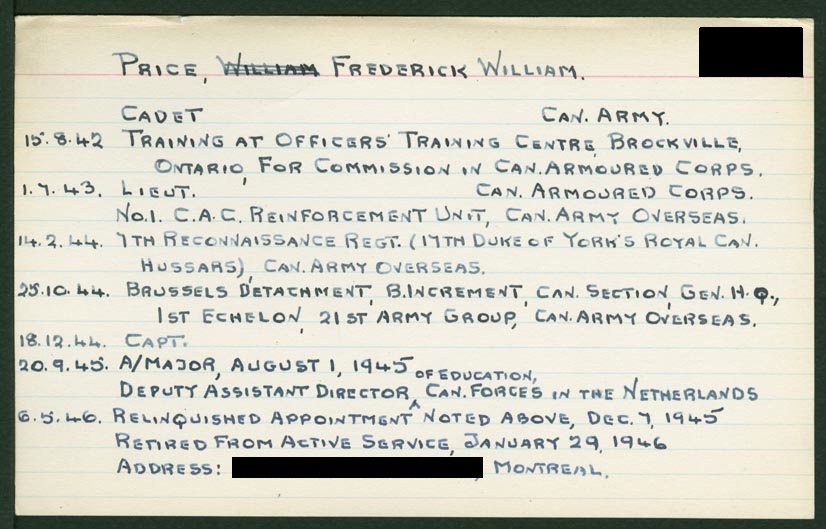 PRICE, WILLIAM FREDERICK WILLIAM.
CADET CAN. ARMY.
15.8.42 TRAINING AT OFFICERS' TRAINING CENTRE, BROCKVILLE,
ONTARIO, FOR COMMISSION IN CAN. ARMOURED CORPS.
1.7.43. LIEUT. CAN. ARMOURED CORPS.
NO.1. C.A.C. REINFORCEMENT UNIT, CAN. ARMY OVERSEAS.
14.2.44. 7TH RECONNAISSANCE REGT. (17TH DUKE OF YORK'S ROYAL CAN.
HUSSARS), CAN. ARMY OVERSEAS.
25.10.44. BRUSSELS DETACHMENT, B. INCREMENT, CAN. SECTION, GEN. H.Q.,
1ST ECHELON, 21ST ARMY GROUP, CAN. ARMY OVERSEAS.
18.12.44. CAPT.
20.9.45. A/MAJOR, AUGUST 1, 1945
OF EDUCATION,
DEPUTY ASSISTANT DIRECTOR, CAN. FORCES IN THE NETHERLANDS
6.5.46. RELINQUISHED APPOINTMENT NOTED ABOVE, DEC. 7, 1945
RETIRED FROM ACTIVE SERVICE, JANUARY 29, 1946
ADDRESS: , MONTREAL.